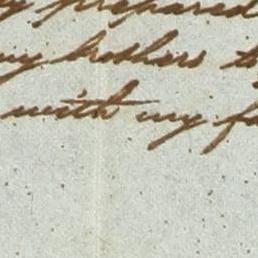 prepared
my brothers to
with my